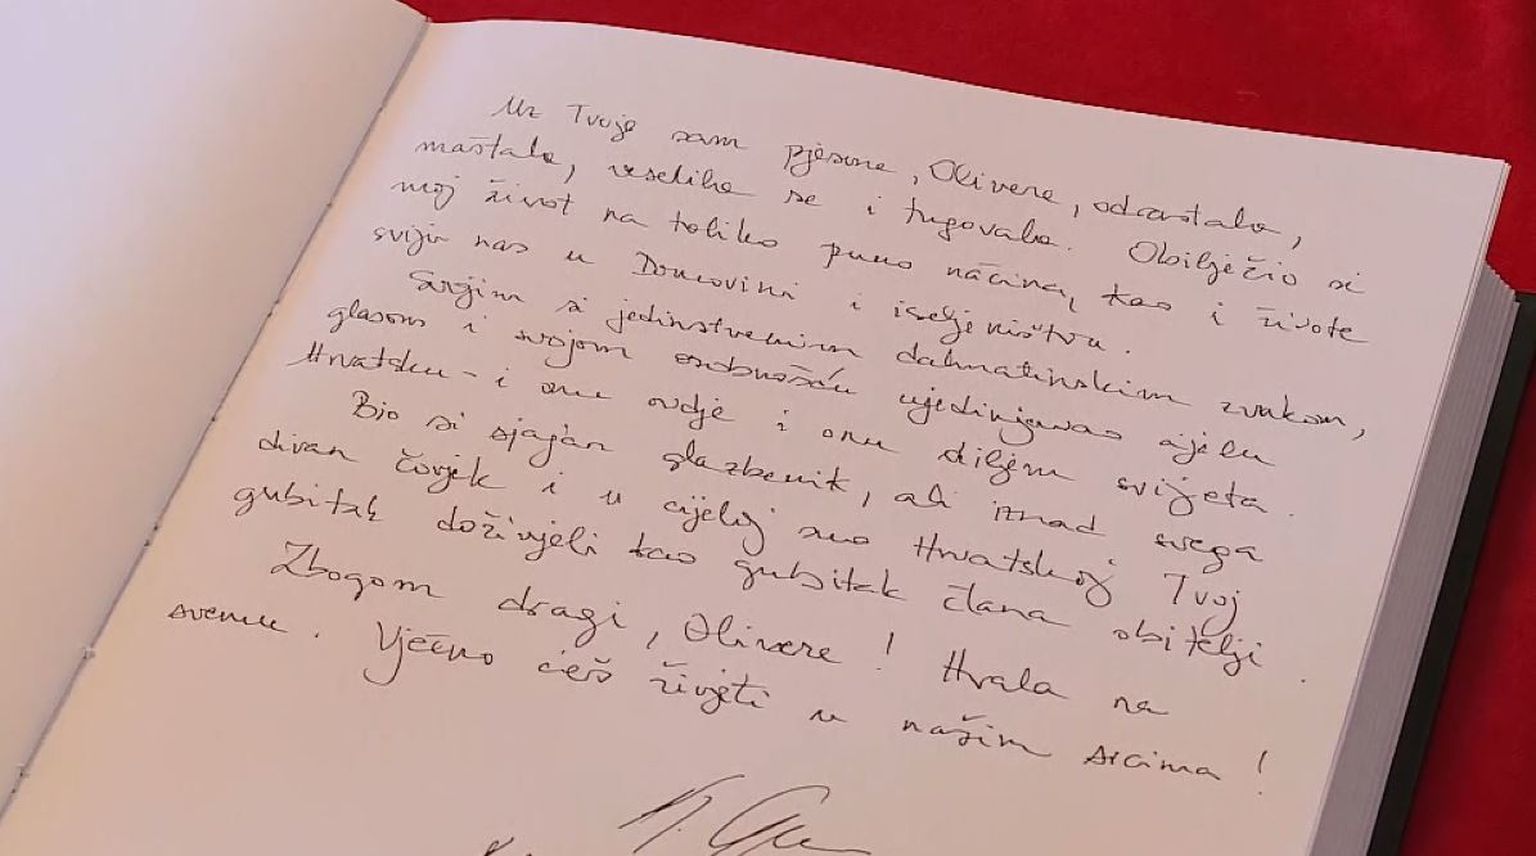 Uz Tvoje sam pjesme, Olivere, odrastala,
maštala, veselila se i tugovala. Obilježio si
moj život na toliko puno načina, kao i živote
svijh nas u Domovini i iseljeništvu.
Svojim si jedinstvenim dalmatinskim zvukom,
glasom i svojom osobnošću ujedinjavao cijelu
Hrvatsku - i onu ovdje i onu diljem svijeta.
Bio si sjajan glazbenik, ali iznad svega
divan čovjek i u cijeloj smo Hrvatskoj Tvoj
gubitak doživjeli kao gubitak člana obitelji.
Zbogom dragi, Olivere! Hvala na
svemu. Vječno ćeš živjeti u našim srcima!